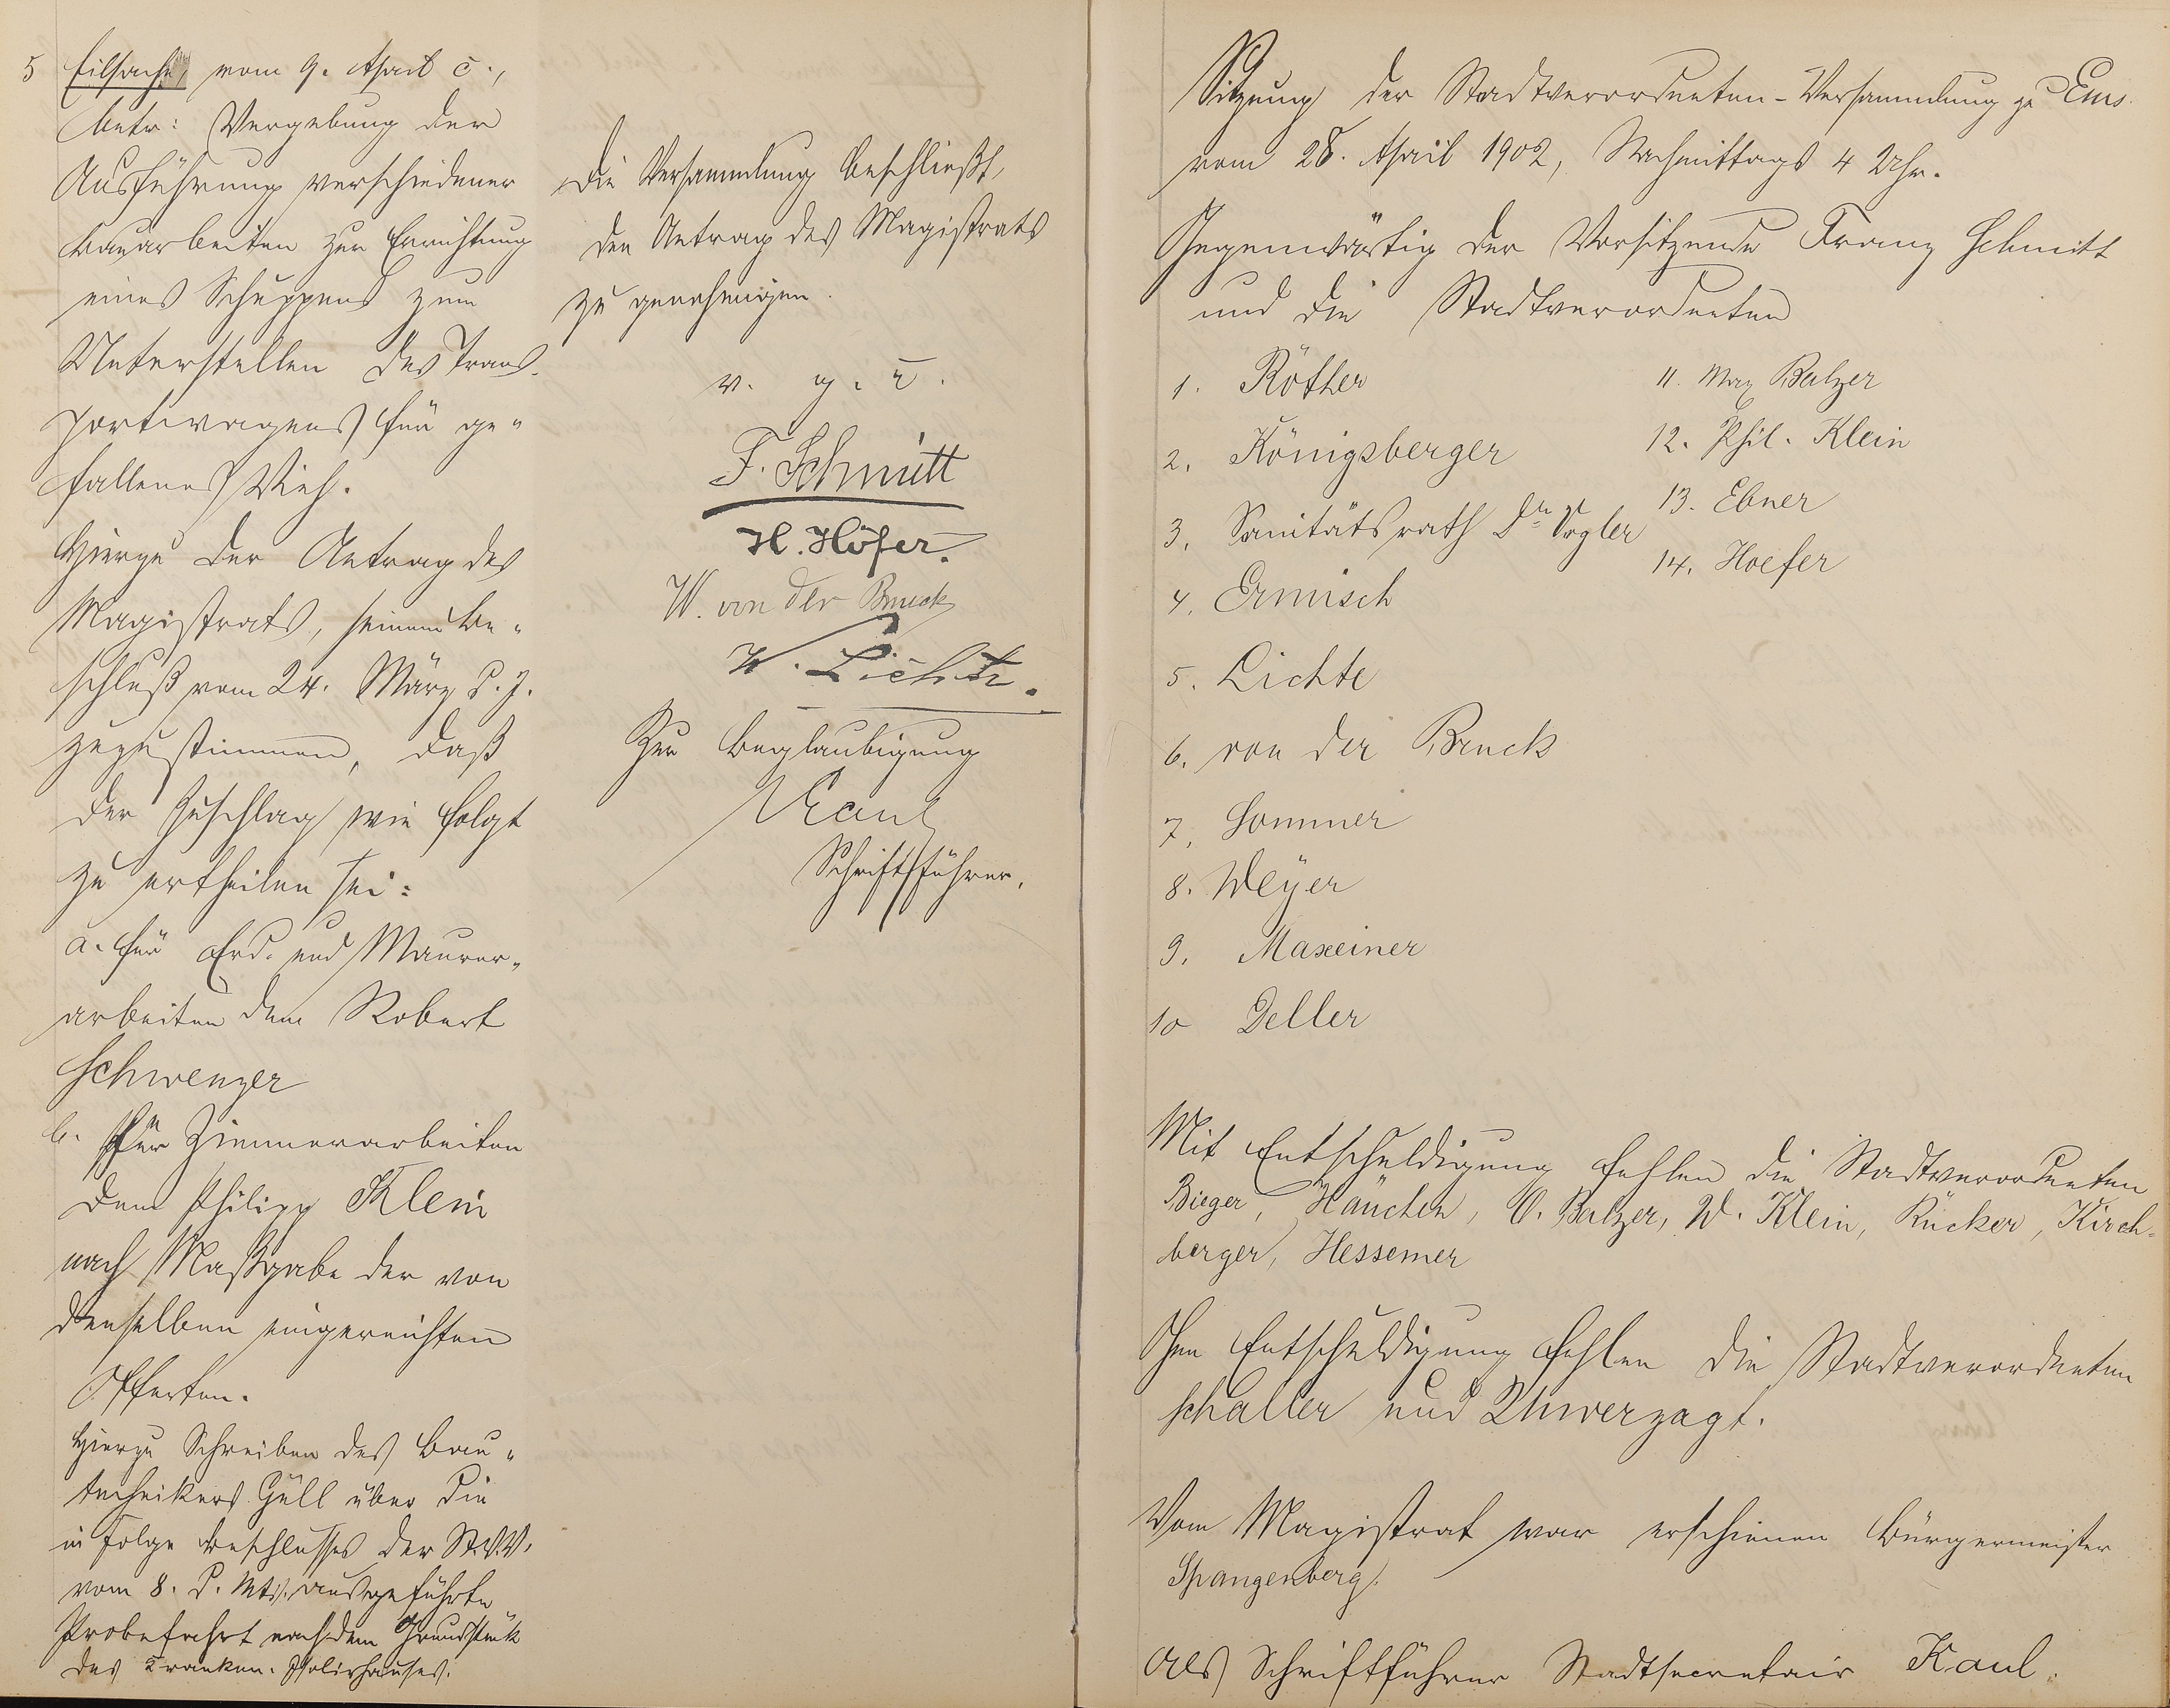 5 Eilsache, vom 9. April c.,
betr: Vergebung der
Ausführung verschiedener
Bauarbeiten zur Errichtung
eines Schuppens zum
Unterstellen des Trans-
portwagens für ge-
fallenes Vieh.
Hierzu der Antrag des
Magistrats, seinem Be-
schluß vom 24. März d. J.
zuzustimmen, daß
der Zuschlag wie folgt
zu ertheilen sei:
a. für Erd- und Maurer-
arbeiten dem Robert
Schwenzer
b. Für Zimmerarbeiten
dem Philipp Klein
nach Maßgabe der von
denselben eingereichten
Offerten.
Hierzu Schreiben des Bau-
technikers Güll über die
in Folge Beschlusses der St.V.V.
vom 8. d. Mts. ausgeführte
Probefahrt nach dem Grundstück
des Kranken-Isolirhauses.
Die Versammlung beschließt,
den Antrag des Magistrats
zu genehmigen.
v. g. u.
F. Schmitt
H. Höfer.
W. von der Bruck
W. Lichte.
Zur Beglaubigung
Kaul
Schriftführer.
Sitzung der Stadtverordneten-Versammlung zu Ems.
vom 28. April 1902, Nachmittags 4 Uhr.
Gegenwärtig der Vorsitzende Franz Schmitt
und die Stadtverordneten
1. Röther
2. Königsberger
3. Sanitätsrath Dr. Vogler
4. Ermisch
5. Lichte
6. von der Bruck
7. Sommer
8. Weyer
9. Maxeiner
10 Deller
11. Max Balzer
12. Phil. Klein
13. Ebner
14. Hoefer
Mit Entschuldigung fehlen die Stadtverordneten
Bieger, Häuchen, O. Balzer, W. Klein, Rücker, Kirch-
berger, Hessemer
Ohne Entschuldigung fehlen die Stadtverordneten
Schaller und Unverzagt.
Vom Magistrat war erschienen Bürgermeister
Spangenberg.
Als Schriftführer Stadtsecretair Kaul.